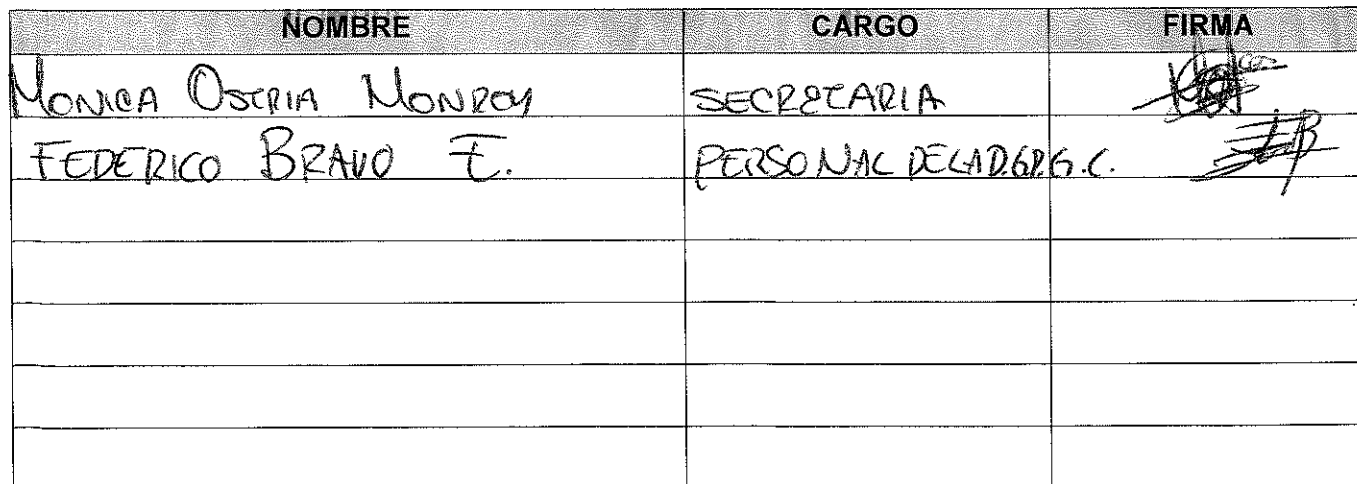 NOMBRE CARGO FIRMA
MONICA OSTRIA MONROY SECRETARIA
FEDERICO BRAVO E. PERSONAL DE LA D.G.P.G.C.